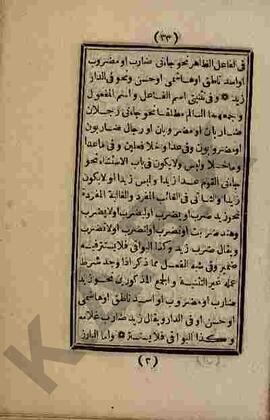 (٣٣)
فى الفاعل الظاهر نحو جاءنى ضارب او مضروب
او اسد ناطق او هاشمى او حسن ونحو فى الدار
زيد ۞ وفى تثنيتى اسم الفاعل واسم المفعول
وجمعهما السالم مطلقا نحو جاءنى رجلان
ضاربان او مضروبان او رجال ضاربون
او مضروبون وفى عدا وخلا فعلين وفى ماعدا
وماخلا وليس ولا يكون فى باب الاستثناء نحو
جاءنى القوم عدا زيدا وليس زيدا ولا يكون
زيدا والثانى فى الغائب المفرد والغائبة المفردة
نحو زيد ضرب او يضرب او ليضرب او لا يضرب
وهند ضربت او تضرب او لتضرب او لا تضرب
ويقال ضرب زيد وكذا البواقى فلا يستتر فيه
ضمير وفى شبه الفعل مما ذكر اذا وجد شرط
عمله غير التثنية والجمع المذكورين نحو زيد
ضارب او مضروب او اسد ناطق او هاشمى
او حسن او فى الدار ويقال زيد ضارب غلامه
وكذا البواقى فلا يستتر ۞ واما البارز
(٣)